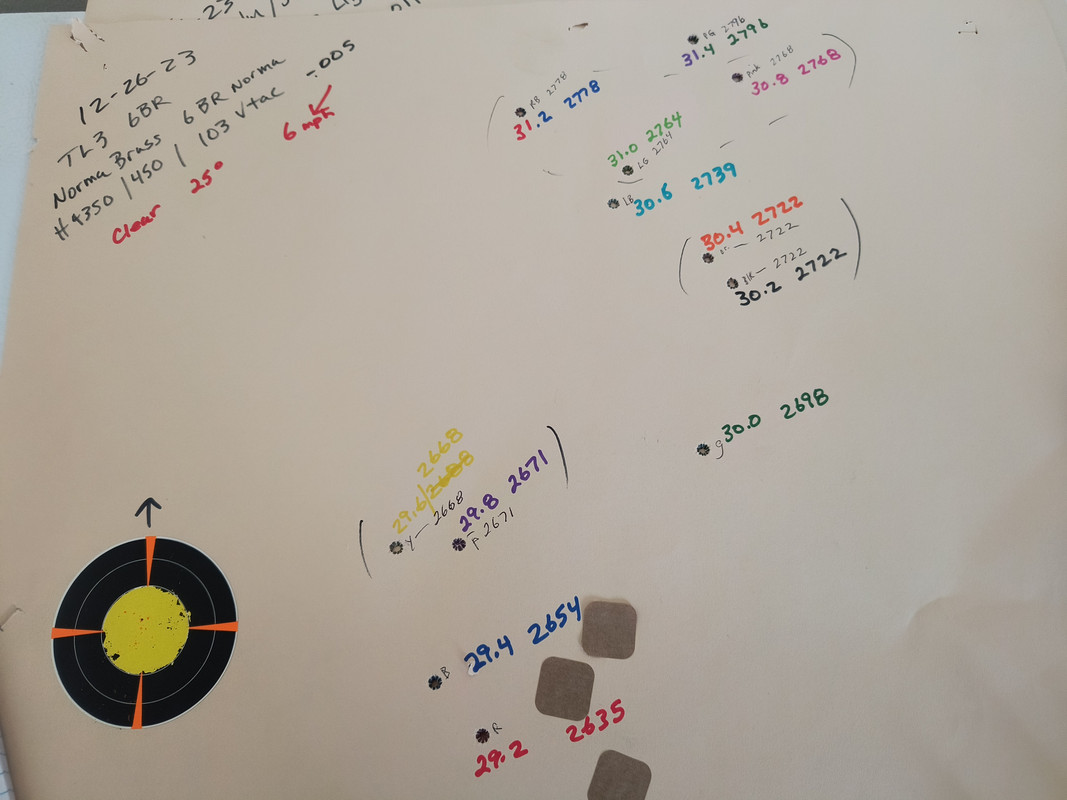 23
12-26-23
TL3 6BR
Norma Brass 6BR Norma -.005
H4350 / 450 / 103 Vtac
Clear 25° 6 mph
PG 2796
31.4 2796
Pink 2768
30.8 2768
RB 2778
31.2 2778
31.0 2764
LG 2764
LB
30.6 2739
30.4 2722
2722
BK — 2722
30.2 2722
g
30.0 2698
2668
29.6/2688
Y — 2668
29.8 2671
P 2671
B
29.4 2654
R
29.2 2635